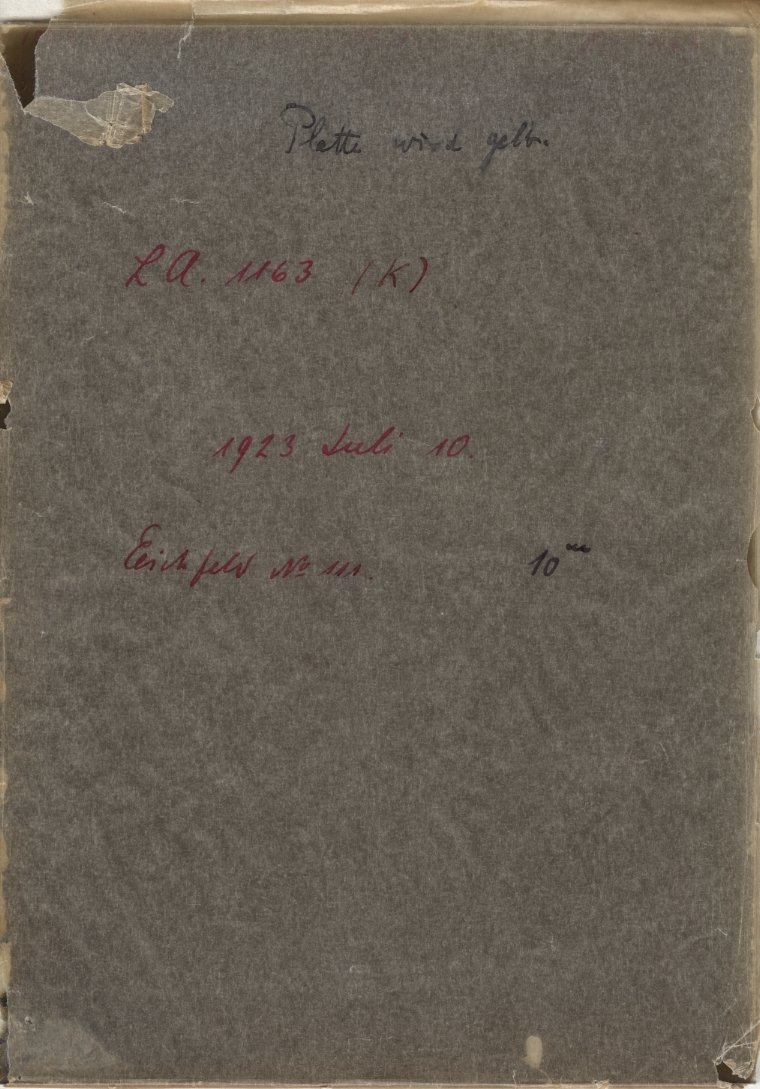 Platte wird gelb.
L A. 1163 (K)
1923 Juli 10.
Eichfeld No 111. 10ᵐ